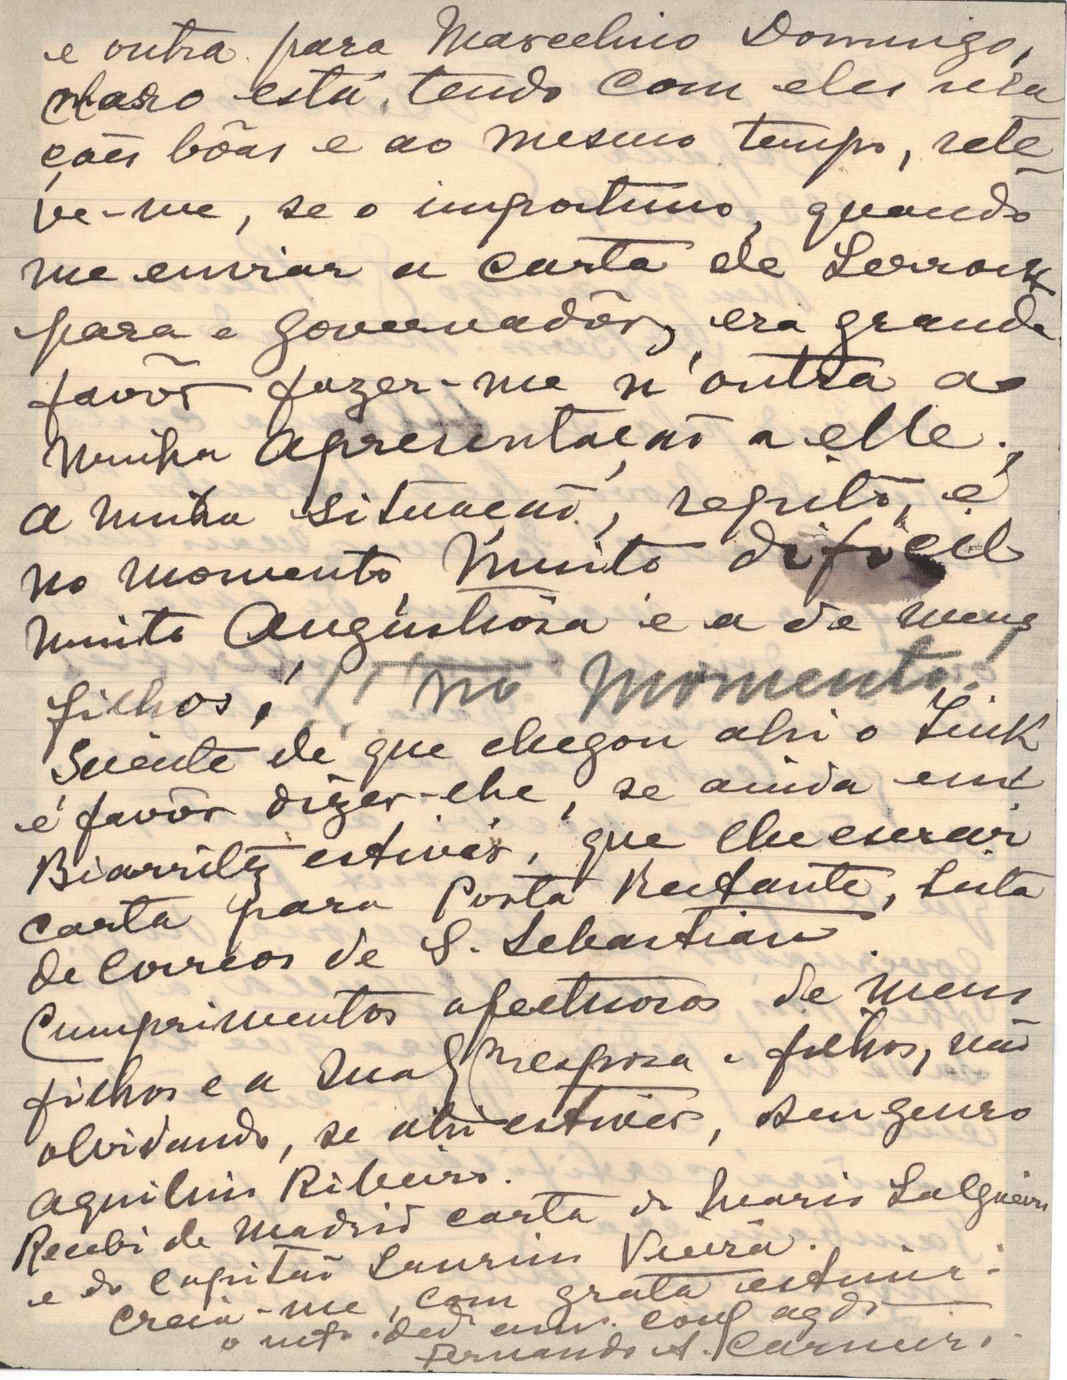 e outra para Marcelino Domingo,
claro está, tendo com eles rela
ções bôas e ao mesmo tempo, rele-
ve-me, se o importuno, quando
me enviar a carta de Lerroux
para o Governadôr, era grande
favôr fazer-me n'outra a
minha apresentação a elle.
A minha situação, repito, é
no momento, muito dificil
muito Angustiósa e a de meus
filhos, no momento.
Sciente de que chegou ahi o
é favôr dizer-lhe, se ainda em
Biarritz estivér, que lhe escrevi
carta para Posta Restante, Lista
de Correos de S. Sebastian
Cumprimentos afectuosos de meus
filhos e a sua esposa e filhos, não
olvidando, se ahi estiver, seu genro
Aquilino Ribeiro.
Recebi de Madrid carta de Mario Salgueiro
e do Capitão Laurin Vieira.
Creia-me, com grata estima
o mto. ded. am. agdo
Fernando A. Carneiro.